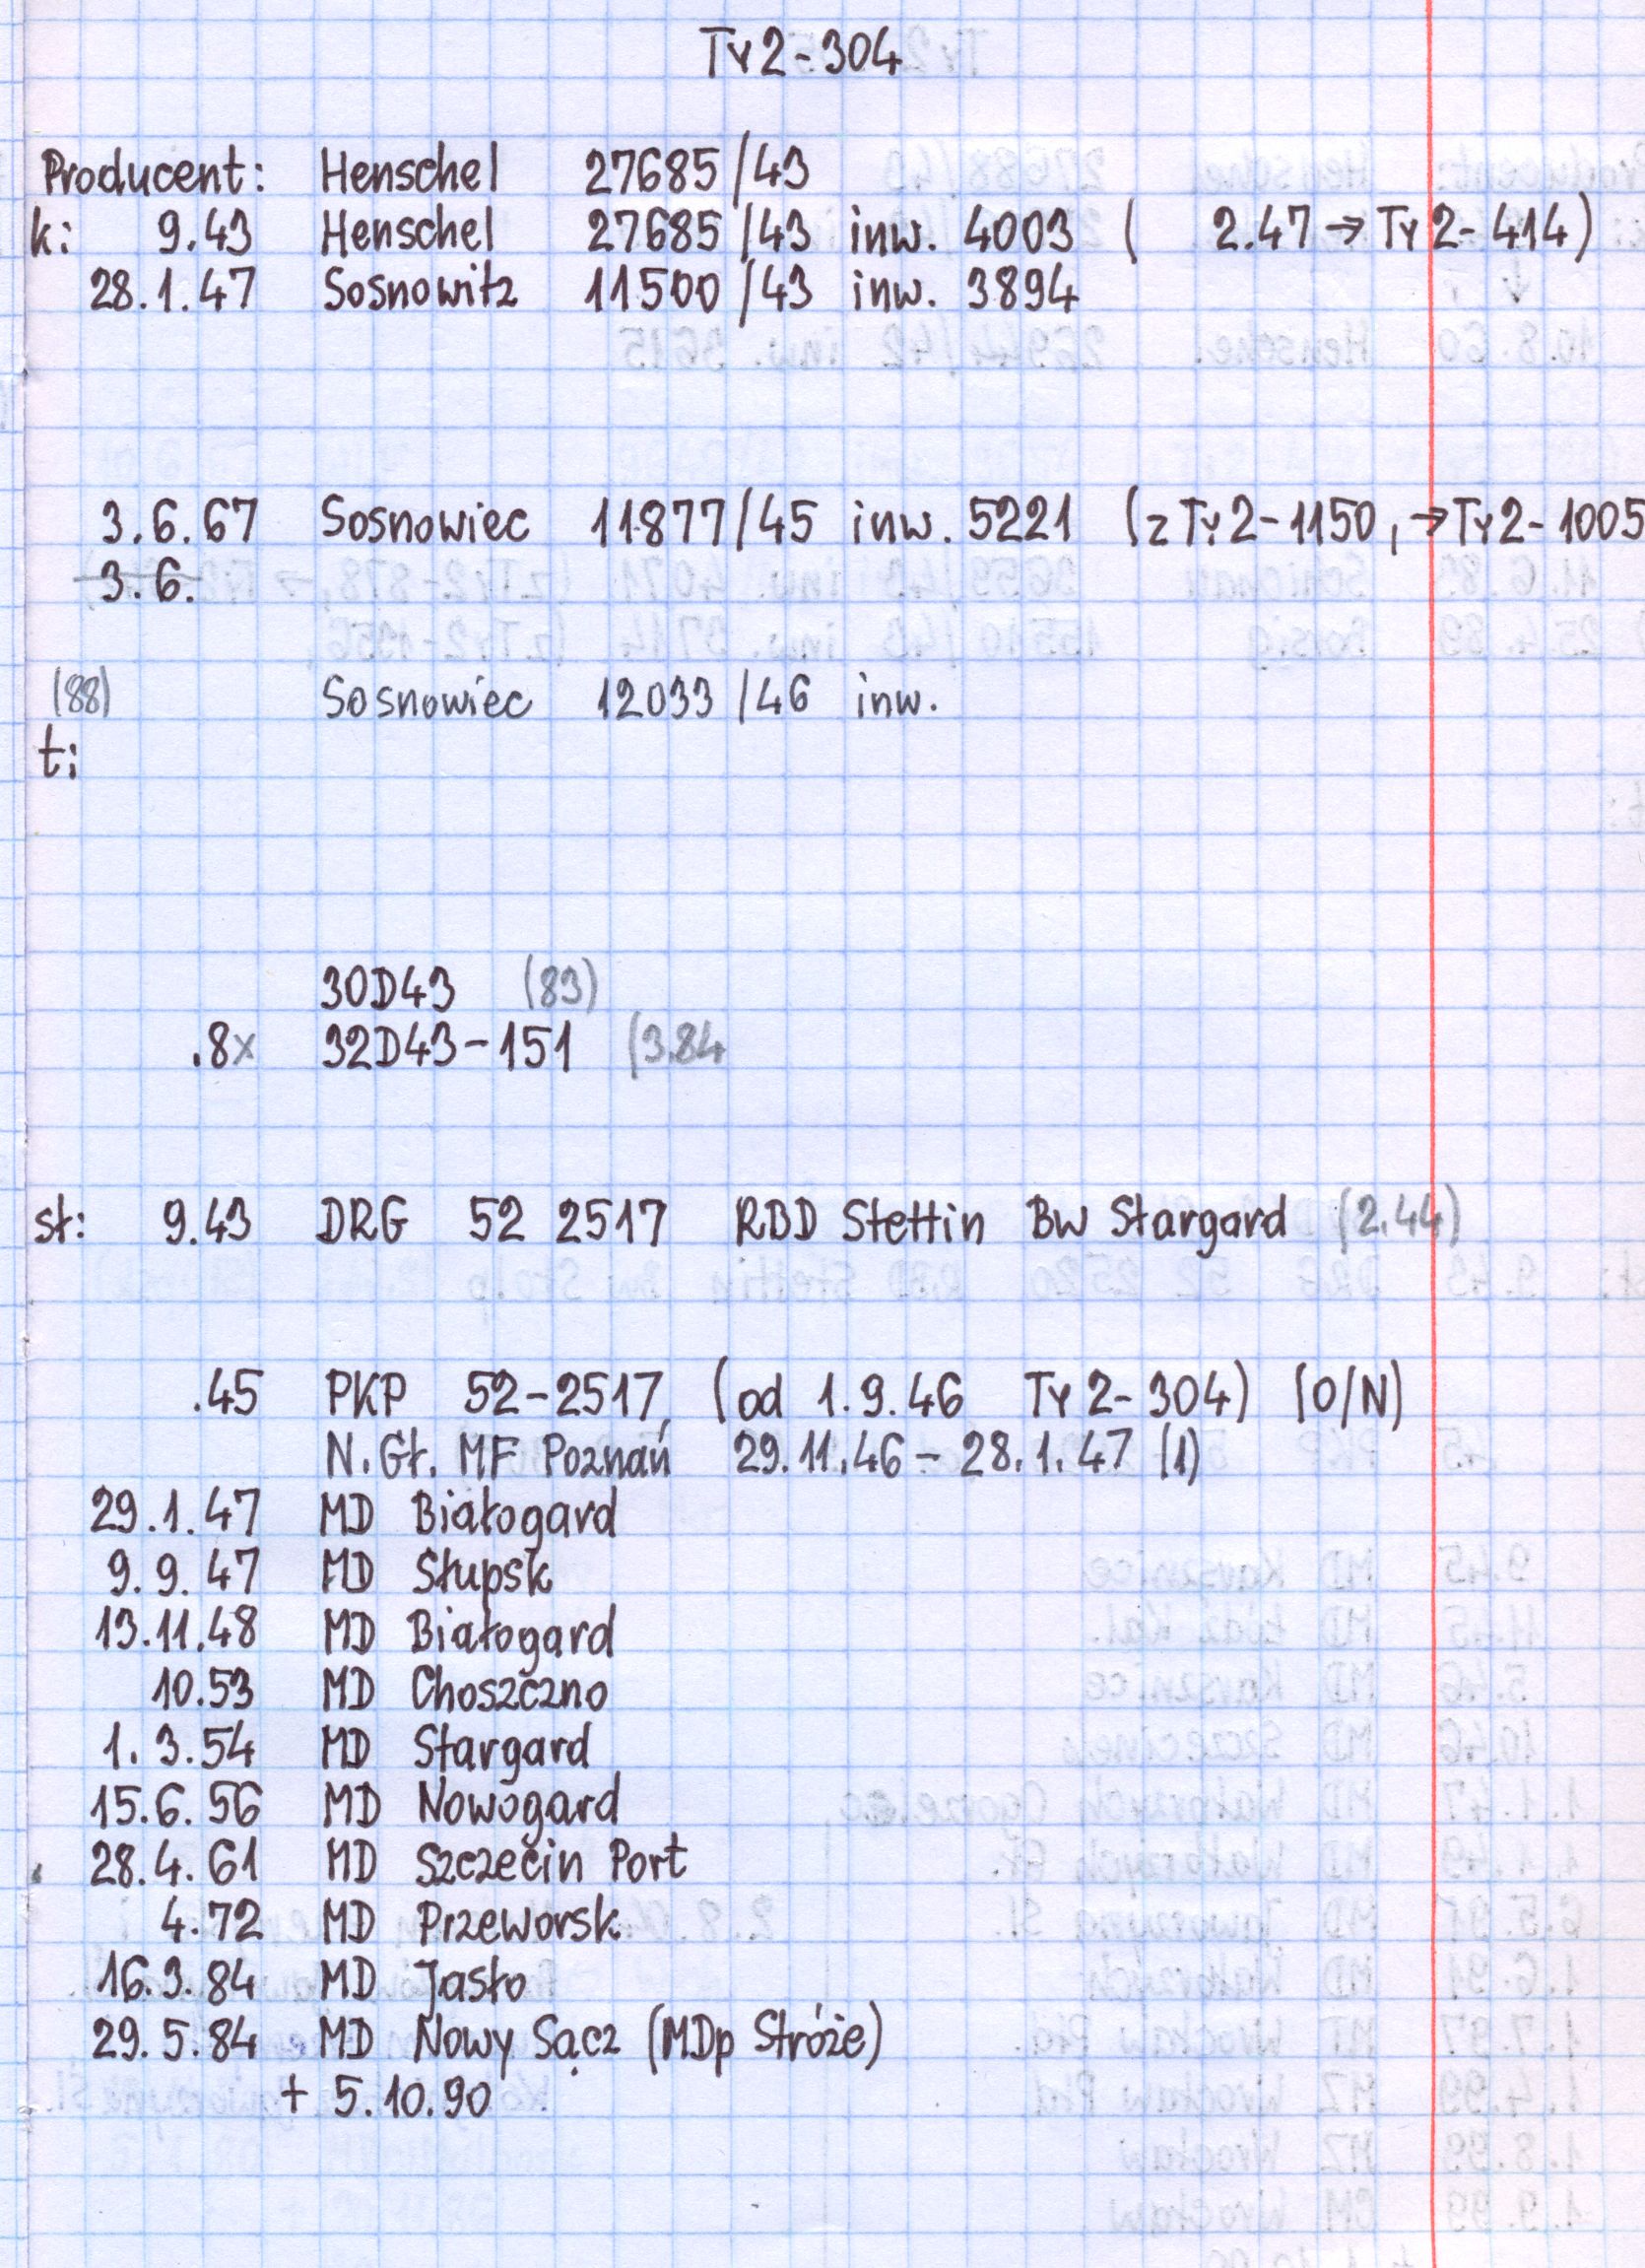 Ty2-304
Producent: Henschel 27685/43
k: 9.43 Henschel 27685/43 inw. 4003 ( 2.47 → Ty2-414)
28.1.47 Sosnowitz 11500/43 inw. 3894
3.6.67 Sosnowiec 11877/45 inw. 5221 (z Ty2-1150, → Ty2-1005
3.6.
(88) Sosnowiec 12033/46 inw.
t:
30D43 (83)
.8x 32D43-151 (3.84
st: 9.43 DRG 52 2517 RBD Stettin BW Stargard (2.44)
.45 PKP 52-2517, (od 1.9.46 Ty2-304) (O/N)
N.Gł. MF Poznań 29.11.46 - 28.1.47 (1)
29.1.47 MD Białogard
9.9.47 MD Słupsk
13.11.48 MD Białogard
10.53 MD Choszczno
1.3.54 MD Stargard
15.6.56 MD Nowogard
28.4.61 MD Szczecin Port
4.72 MD Przeworsk
16.3.84 MD Jasło
29.5.84 MD Nowy Sącz (MDp Stróże)
+ 5.10.90